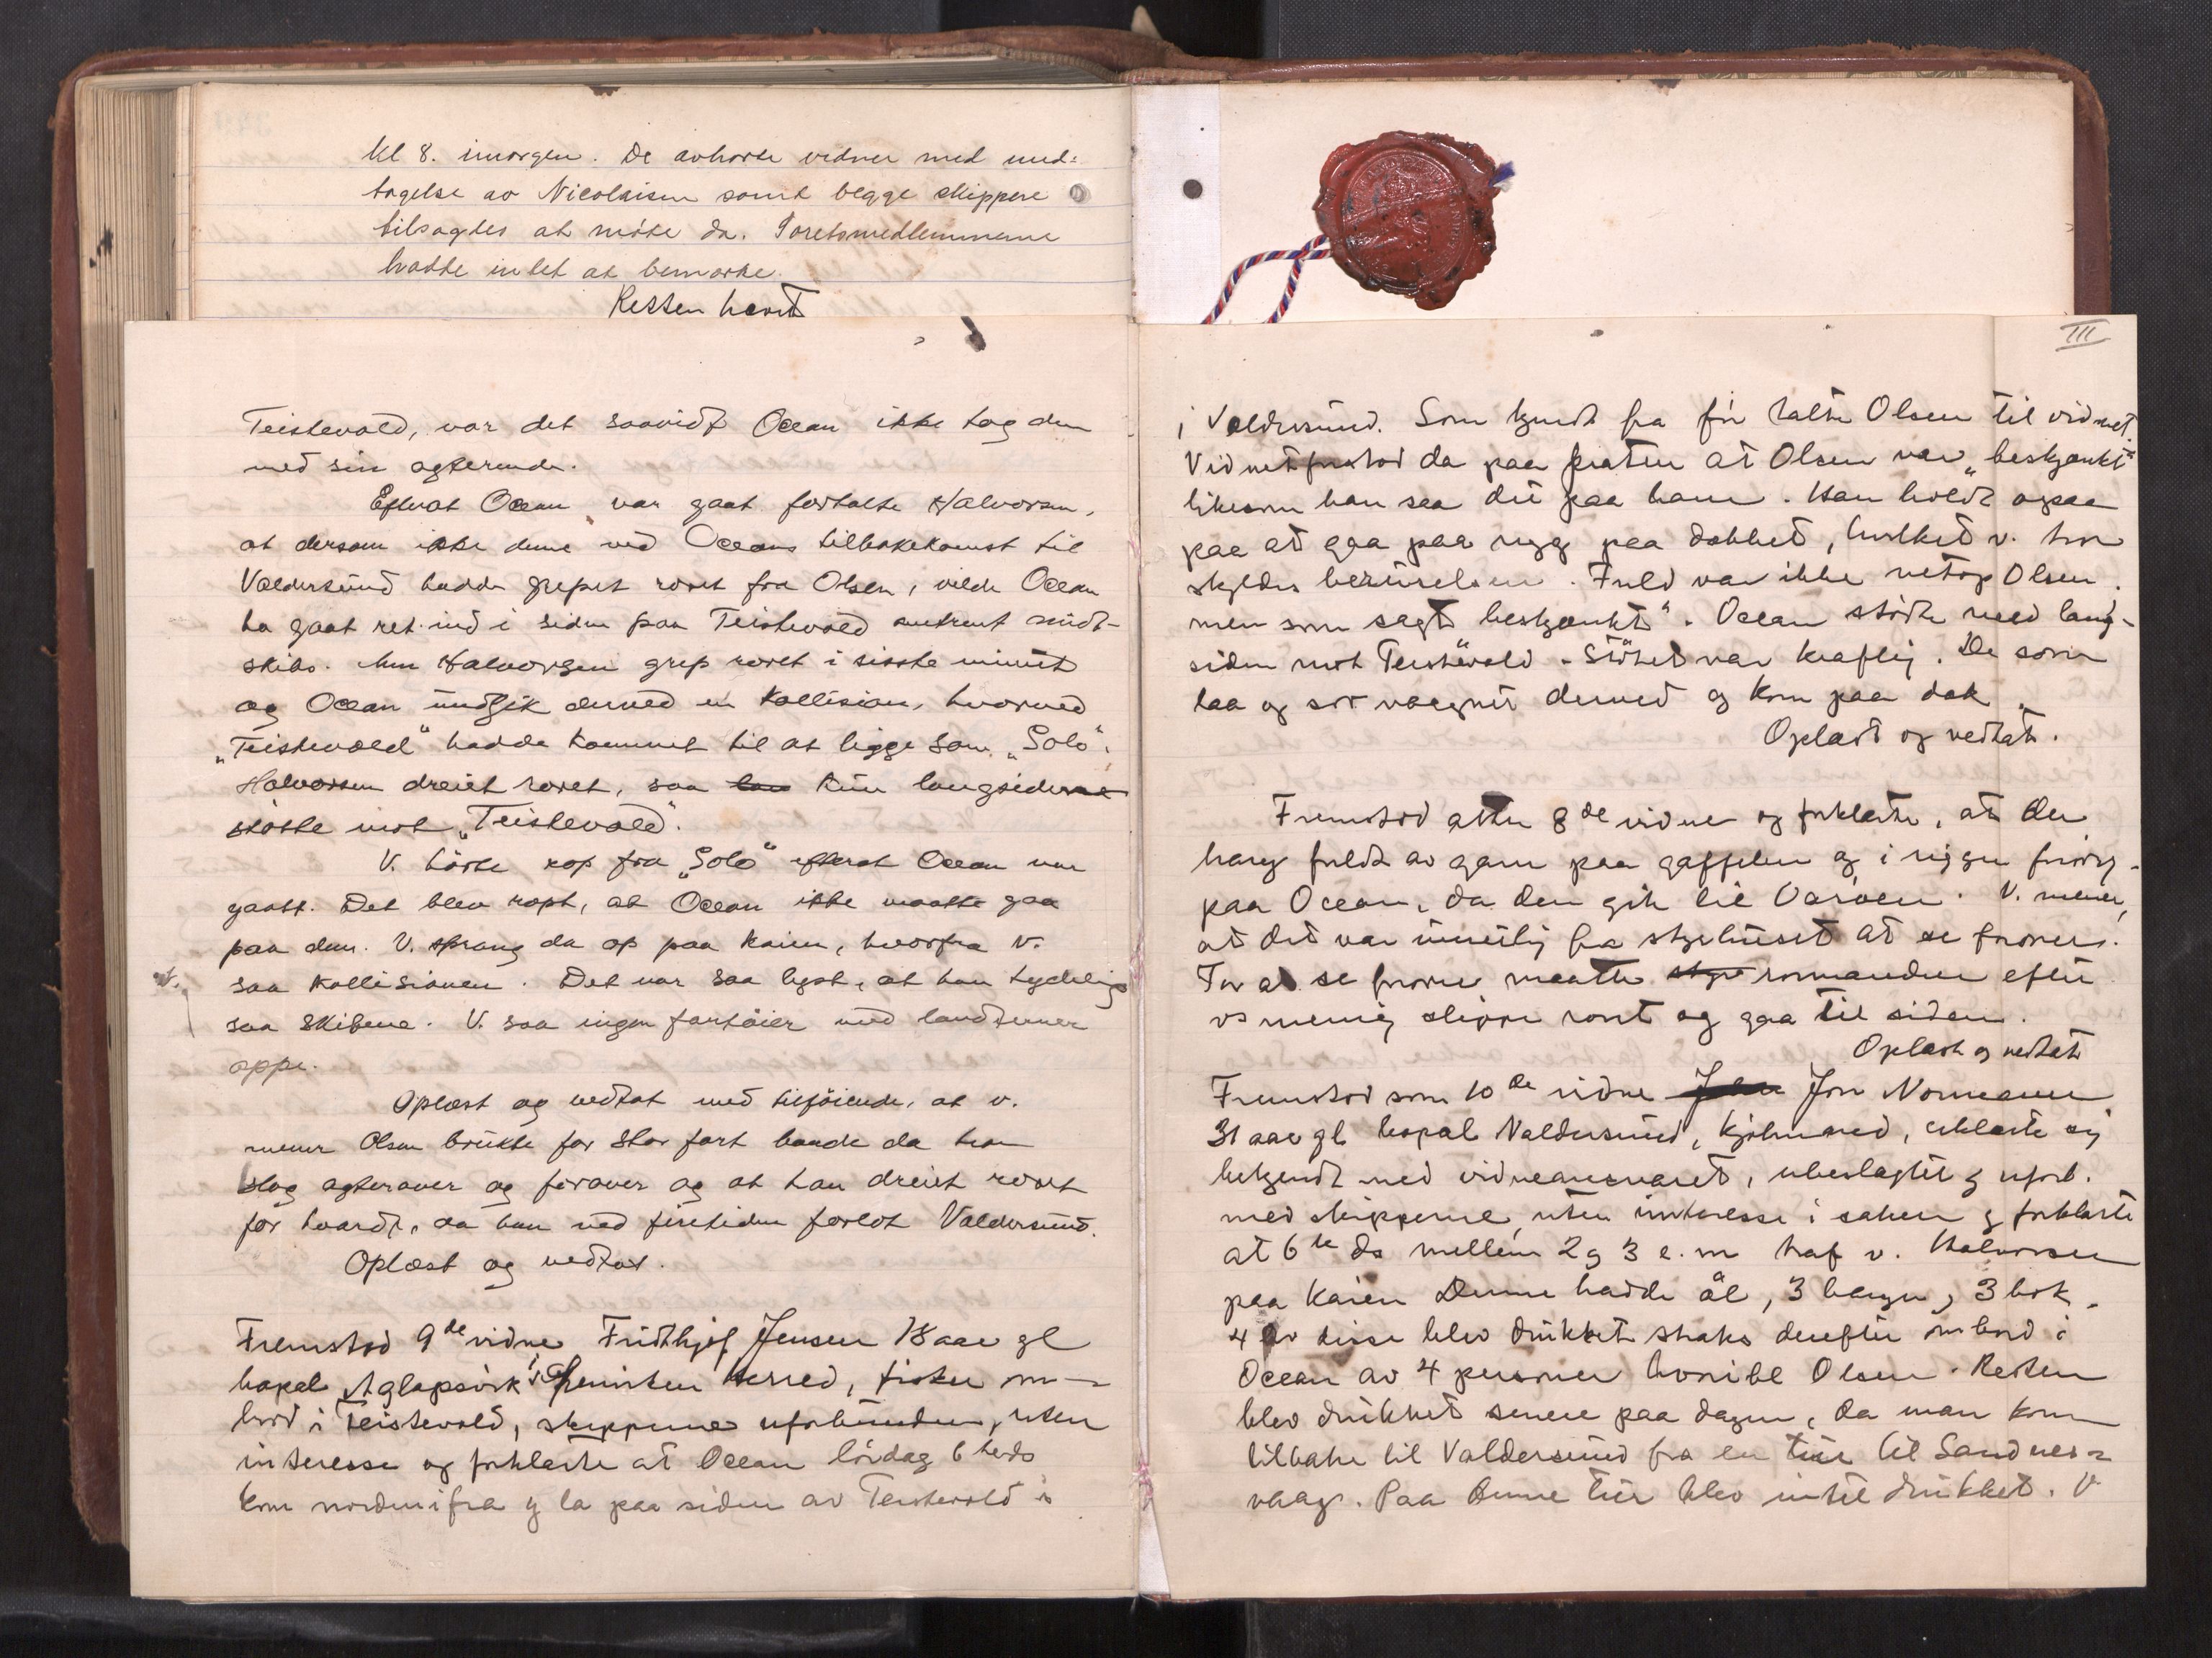 Kl 8. imorgen. De avhørte vidner med und-
tagelse av Nicolaisen samt begge skippere
tilsagdes at møte da. Søretsmedlemmerne
hadde intet at bemærke.
Retten hævet
Teistevold, var det saavidt Ocean ikke tog den
med sin agterende.
Efterat Ocean var gaat fortalte Halvorsen,
at dersom ikke denne ved Oceans tilbakekomst til
Valdersund hadde grepet roret fra Olsen, vilde Ocean
ha gaat ret ind i siden paa Teistevold omtrent midt-
skibs. Men Halvorsen grep roret i sisste minut
og Ocean undgik derved en kollision, hvorved
"Teistevold" hadde kommet til at ligge som "Solo".
Halvorsen dreiet roret, saa kun langsiderne
støtte mot "Teistevold".
V. hørte rop fra "Solo" efterat Ocean var
gaatt. Det blev ropt, at Ocean ikke maatte gaa
paa den. V. sprang da op paa kaien, hvorfra v.
saa kollisionen. Det var saa lyst, at han tydelig
saa skibene. V. saa ingen fartøier med landterner
oppe.
Oplæst og vedtat med tilføiende, at v.
mener Olsen brukte for stor fart baade da han
slog agterover og forover og at han dreiet roret
for hvardt, da han ved firetiden forlot Valdersund.
Oplæst og vedtat.
Fremstod 9de vidne Fridthjof Jensen 18 aar gl
bopæl Aglapsvik i herred, fisker om-
bord i Teistevold, skipperne uforbunden, uten
interesse og forklarte at Ocean lördag 6te ds
kom nordenifra og la paa siden av Teistevold i
III
i Valdersund. Som kjendt fra før talte Olsen til vidnet.
Vidnet forstod da paa praten at Olsen var "beskjænkt"
likesom han saa det paa ham. Han holdt ogsaa
paa at gaa paa rygg paa dækket, hvilket v. tror
skyldes beruselsen. Fuld var ikke netop Olsen,
men som sagt "beskjænkt". Ocean stødte med lang-
siden mot Teistevold. Stötet var kraftig. De som
laa og sov vaagnet derved og kom paa dæk.
Oplæst og vedtat.
Fremstod atter 8de vidne og forklarte, at der
hang fuldt av garn paa gaffelen og i riggen forrig
paa Ocean, da den gik til Varøen. V. mener,
at det var umulig fra styrhuset at se forover.
For at se forover maatte rormanden efter
vs mening slippe roret og gaa til siden.
Oplæst og vedtat
Fremstod som 10de vidne Jon Normann
31 aar gl bopæl Valdersund, kjøbmand, erklærte sig
bekjendt med vidneansvaret, ubeslegtet og uforb.
med skipperne, uten interesse i saken og forklarte
at 6te ds mellem 2 og 3 e.m traf v. Halvorsen
paa kaien. Denne hadde øl, 3 bayer, 3 bok.
4 av disse blev drukket straks derefter ombord i
Ocean av 4 personer hvoribl Olsen. Resten
blev drukket senere paa dagen, da man kom
tilbake til Valdersund fra en tur til Sandnes-
vaag. Paa denne tur blev intet drukket. V